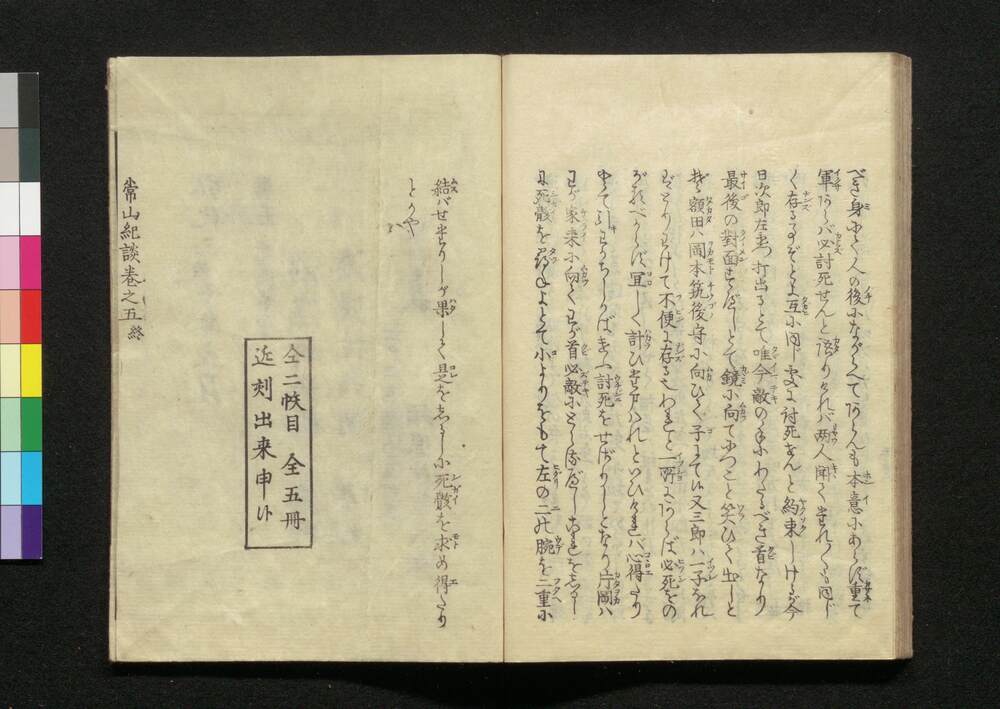 べき身にて人の後にながらへてあらんも本意にあらず重て
軍あらば必討死せんと語りければ両人聞て われ〳〵も同じ
く存る事ぞとよ互に同じ 討死せんと約束しけるが今
日次郎左 打出るとて唯今敵の手にわたるべき首なり
最後の對面 とて鏡に向てにつこと笑ひて出しと
ぞ額田ハ岡本筑後守に向ひて子にて候又三郎ハ一子なれ
ばとりわけて不便に存る われと一所にあらば必死をの
がるべからず宜しく計ひ給はれといひければ心得たり
とて引わかちしかばきふ討死をせざりしとなり片岡ハ
わが家来に向てわが首必敵にとらるべし を志るし
に死骸を尋ねよとて小よりをもて左の二の腕を二重に
結バせたりしが果して是を志るしに死骸を求め得たり
とかや
全二帙目 全五冊
近刻出来申候
常山紀談巻之五終